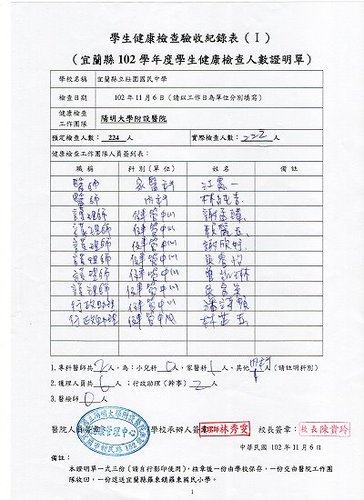 學生健康檢查驗收紀錄表(I)
(宜蘭縣102學年度學生健康檢查人數證明單)
學校名稱 宜蘭縣立壯圍國民中學
檢查日期 102年11月6日(請以工作日為單位分別填寫)
健康檢查工作團隊 陽明大學附設醫院
預定檢查人數: 224 人 實際檢查人數: 222 人
健康檢查工作團隊人員簽到表:
職稱 科別(單位) 姓名 備註
醫師 家醫科
醫師 內科
護理師 健管中心
護理師 健管中心
護理師 健管中心
護理師 健管中心
護理師 健管中心
護理師 健管中心
行政助理 健管中心
行政助理 健管中心
1.專科醫師共2人,為:小兒科 人,家醫科1人,其他 內科 1人(請註明科別)
2.護理人員共6人;行政助理(幹事)2人
3.醫檢師0人
醫院人員簽章 學校承辦人簽章 林秀雯 校長簽章: 校長陳贊玲
中華民國102年11月6日
備註:
本證明單一式三份(請自行影印使用),核章後一份由學校保存,一份交由醫院工作團隊收回,一份送送宜蘭縣羅東鎮羅東國民小學。
1